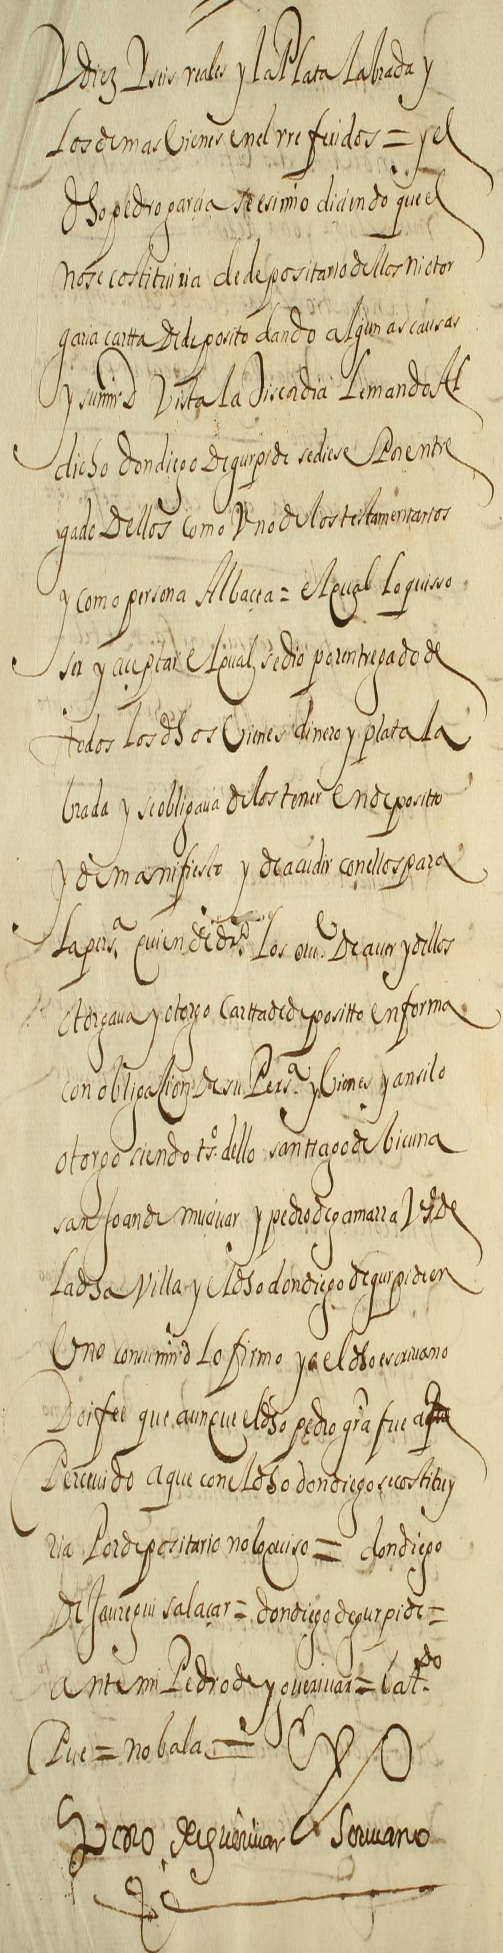 Y diez Y seis reales y la Plata labrada y
Los demas bienes en el rreferidos = y el
dho pedro garcia se esimio diciendo que el
no se costituiria de depositario dellos ni otor
garia cartta De deposito dando algunas causas
y su mrd Vista la discordia le mando Al
dicho don diego de gurpide se diese Por entre
gado Dellos como Vno de los testamentarios
y como persona Albaçea = el qual lo quisso
ser y aceptar el qual se dio por entregado de
todos los dhos bienes dinero y plata la
brada y se obligaua de los tener en depositto
y de manifiesto y de acudir con ellos para
La persa quien de dro los oue De auer y dellos
otorgaua y otorgo Carttade depositto en forma
con obligaçion De su Persa y bienes y ansi lo
otorgo ciendo tso dello santiago de bicuna
san Joan de muciuar y pedro de gamarra Vos De
La dha Villa y el dho don diego de gurpide en
Vno con su mrd Lo firmo yo el dho escriuano
Doi fee que aunque el dho pedro gra fue a
Perceuido a que con el dho don diego se costituy
ria Por depositario no lo quiso = don diego
De Jauregui salaçar = don diego de gurpide =
ante mi Pedro de yguerivar = Vatdo
Que = no bala =
Pedro de yguerivar Scriuano